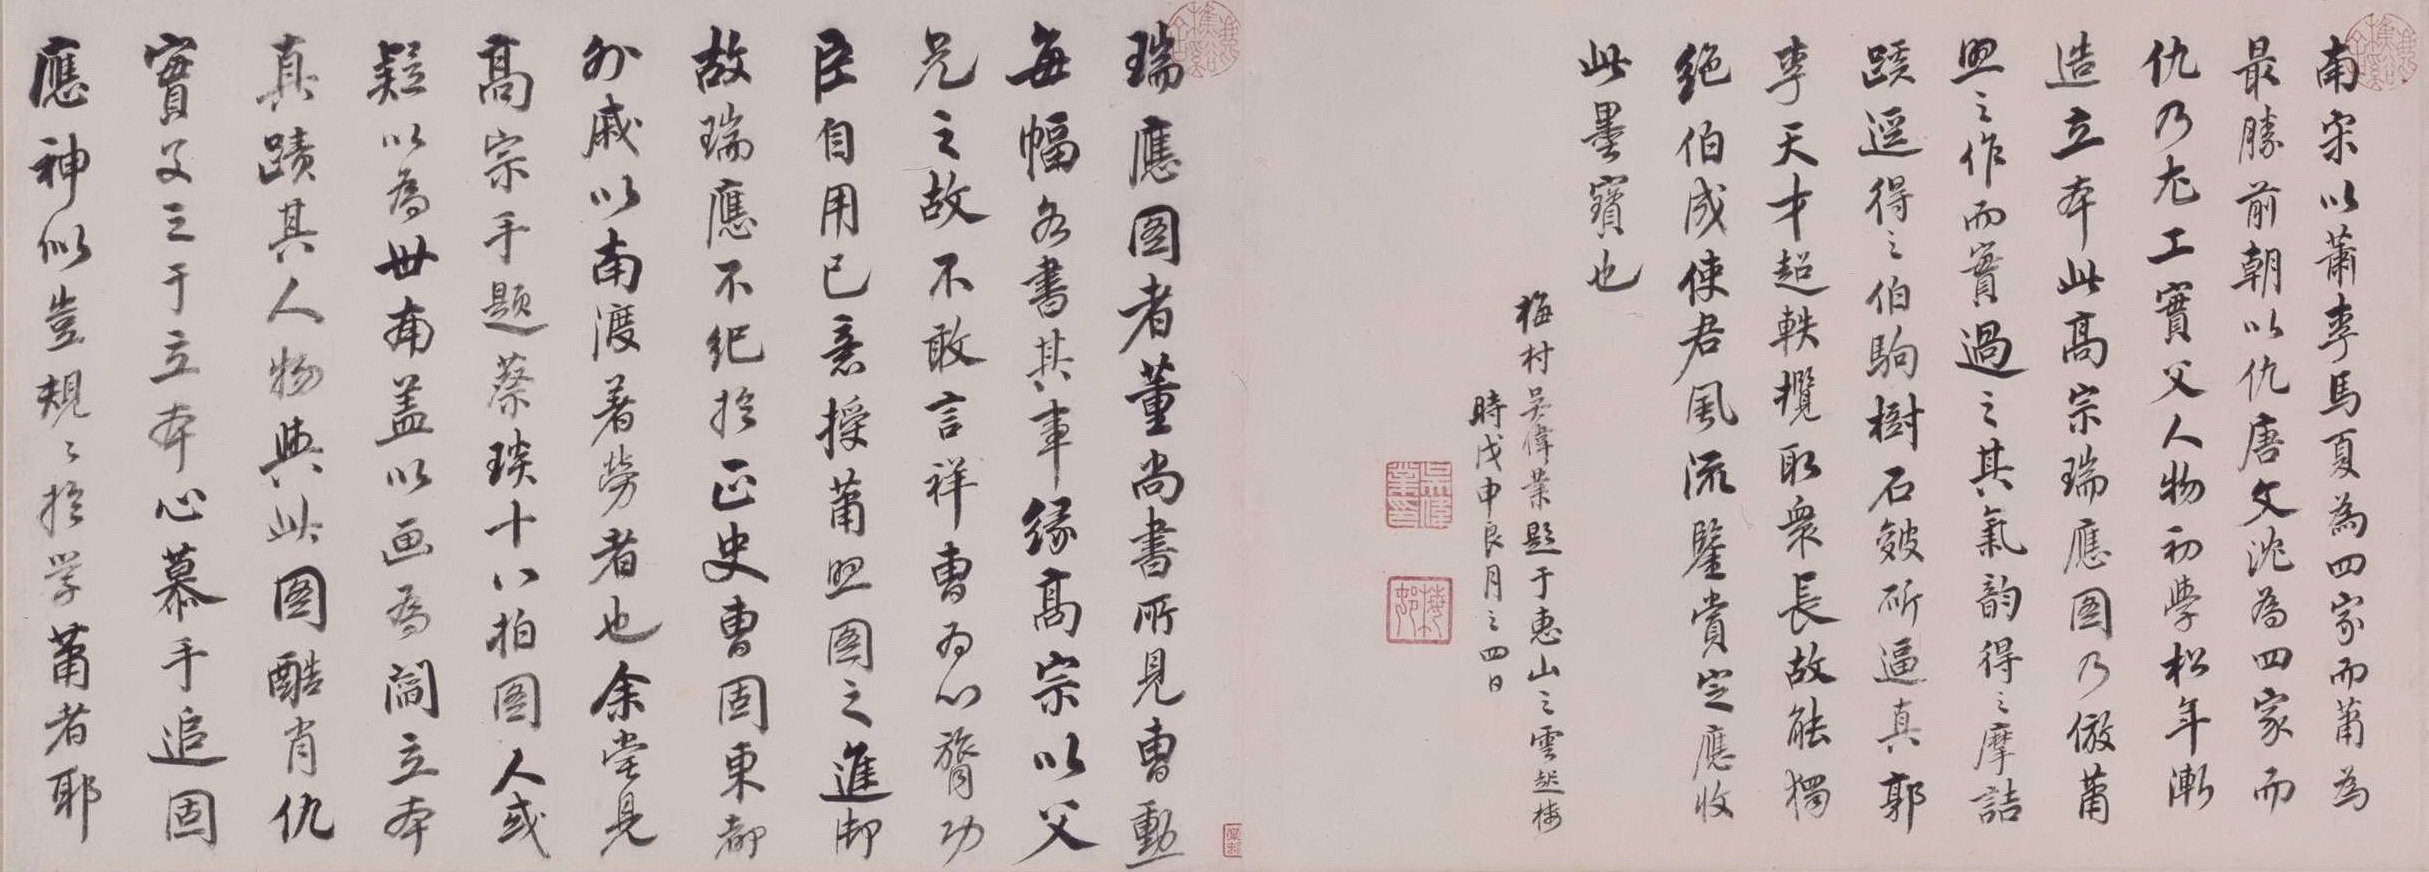 南宋以蕭李馬夏為四家而蕭為
最勝前朝以仇唐文沈為四家而
仇乃尤工實父人物初學松年漸
造立本此高宗瑞應图乃倣蕭
照之作而實過之其氣韵得之摩詰
蹊逕得之伯駒樹石皴斫逼真郭
李天才超軼攬取衆長故能獨
绝伯成使君風流鑒賞定應收
此墨寶也
梅村吳偉業題于惠山之雲起樓
時戊申良月之四日
瑞應图者董尚書所見曹勳
每幅各書其事缘高宗以父
兄之故不敢言祥曹為心膂功
臣自用己意授蕭照图之進御
故瑞應不紀於正史曹固東都
外戚以南渡著勞者也余嘗見
高宗手題蔡琰十八拍图人或
疑以為世南盖以画為閻立本
真蹟其人物與此图酷肖仇
實父之于立本心慕手追固
應神似豈規之於学蕭者耶
吳偉業印
梅邨